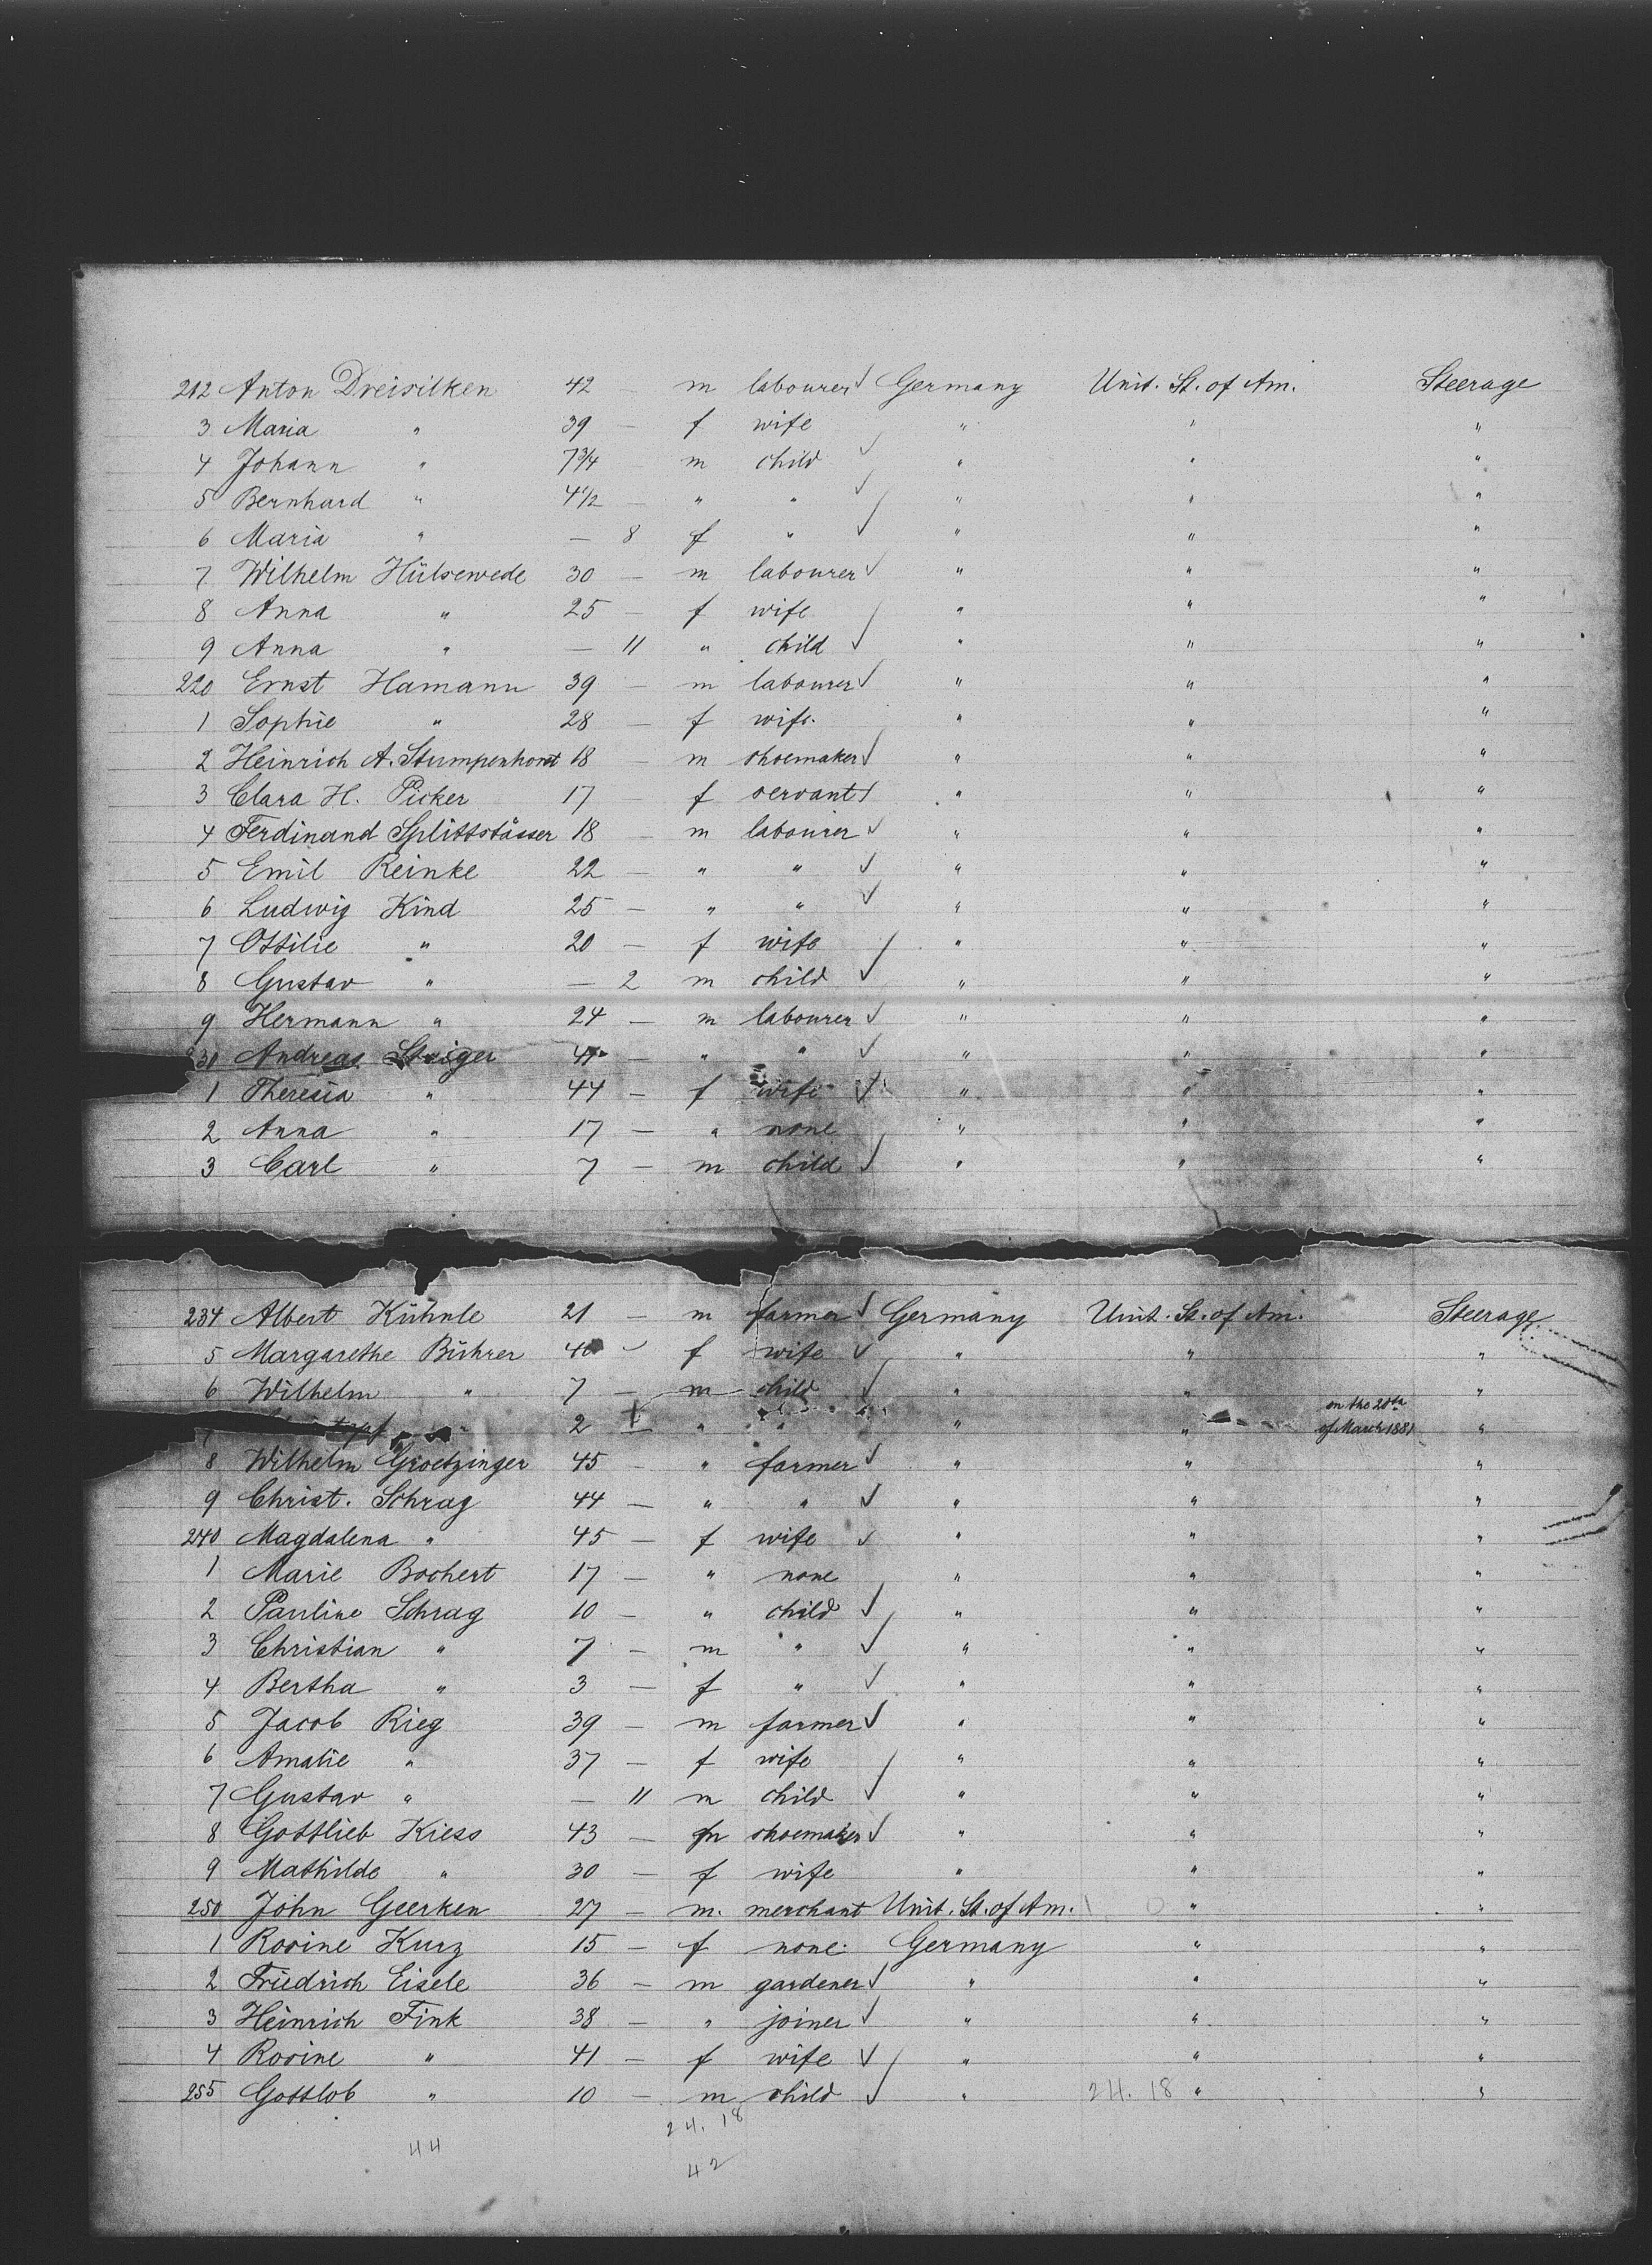 212 Anton Dreisilken 42 m labourer Germany Unit. St. of Am. Steerage
3 Maria " 39 — f wife " " "
4 Johann " 7 3/4 m child " " "
5 Bernhard " 4 1/2 — " " " " "
6 Maria " — 8 f " " " "
7 Wilhelm Hülsewede 30 — m labourer " " "
8 Anna " 25 — f wife " " "
9 Anna " — 11 " child " " "
220 Ernst Hamann 39 — m labourer " " "
1 Sophie " 28 — f wife. " " "
2 Heinrich A. Stumpenhorst 18 — m shoemaker " " "
3 Clara H. Picker 17 — f servant " " "
4 Ferdinand Splittstösser 18 — m labourer " " "
5 Emil Reinke 22 — " " " " "
6 Ludwig Kind 25 — " " " " "
7 Ottilie " 20 — f wife " " "
8 Gustav " — 2 m child " " "
9 Hermann " 24 — m labourer " " "
230 Andreas — " " " " "
1 Theresia " 44 — f wife " " "
2 Anna " 17 — " none " " "
3 Carl " 7 — m child " " "
234 Albert Kühnle 21 — m farmer Germany Unit. St. of Am. Steerage
5 Margarethe Bührer f wife " " "
6 Wilhelm " 7 — m child " " "
2 " " " " on the 20th of March 1881 "
8 Wilhelm Groetzinger 45 — " farmer " " "
9 Christ. Schrag 44 — " " " " "
240 Magdalena " 45 — f wife " " "
1 Marie Bochert 17 — " none " " "
2 Pauline Schrag 10 — " child " " "
3 Christian " 7 — m " " " "
4 Bertha " 3 — f " " " "
5 Jacob Rieg 39 — m farmer " " "
6 Amalie " 37 — f wife " " "
7 Gustav " — 11 m child " " "
8 Gottlieb Kiess 43 — m shoemaker " " "
9 Mathilde " 30 — f wife " " "
250 John Geerken 27 — m. merchant Unit. St. of Am. " "
1 Rosine Kurz 15 — f none. Germany " "
2 Friedrich Eisele 36 — m gardener " " "
3 Heinrich Fink 38 — " joiner " " "
4 Rosine " 41 — f wife " " "
255 Gottlob " 10 — m child " 24. 18 " "
24. 18
44
42